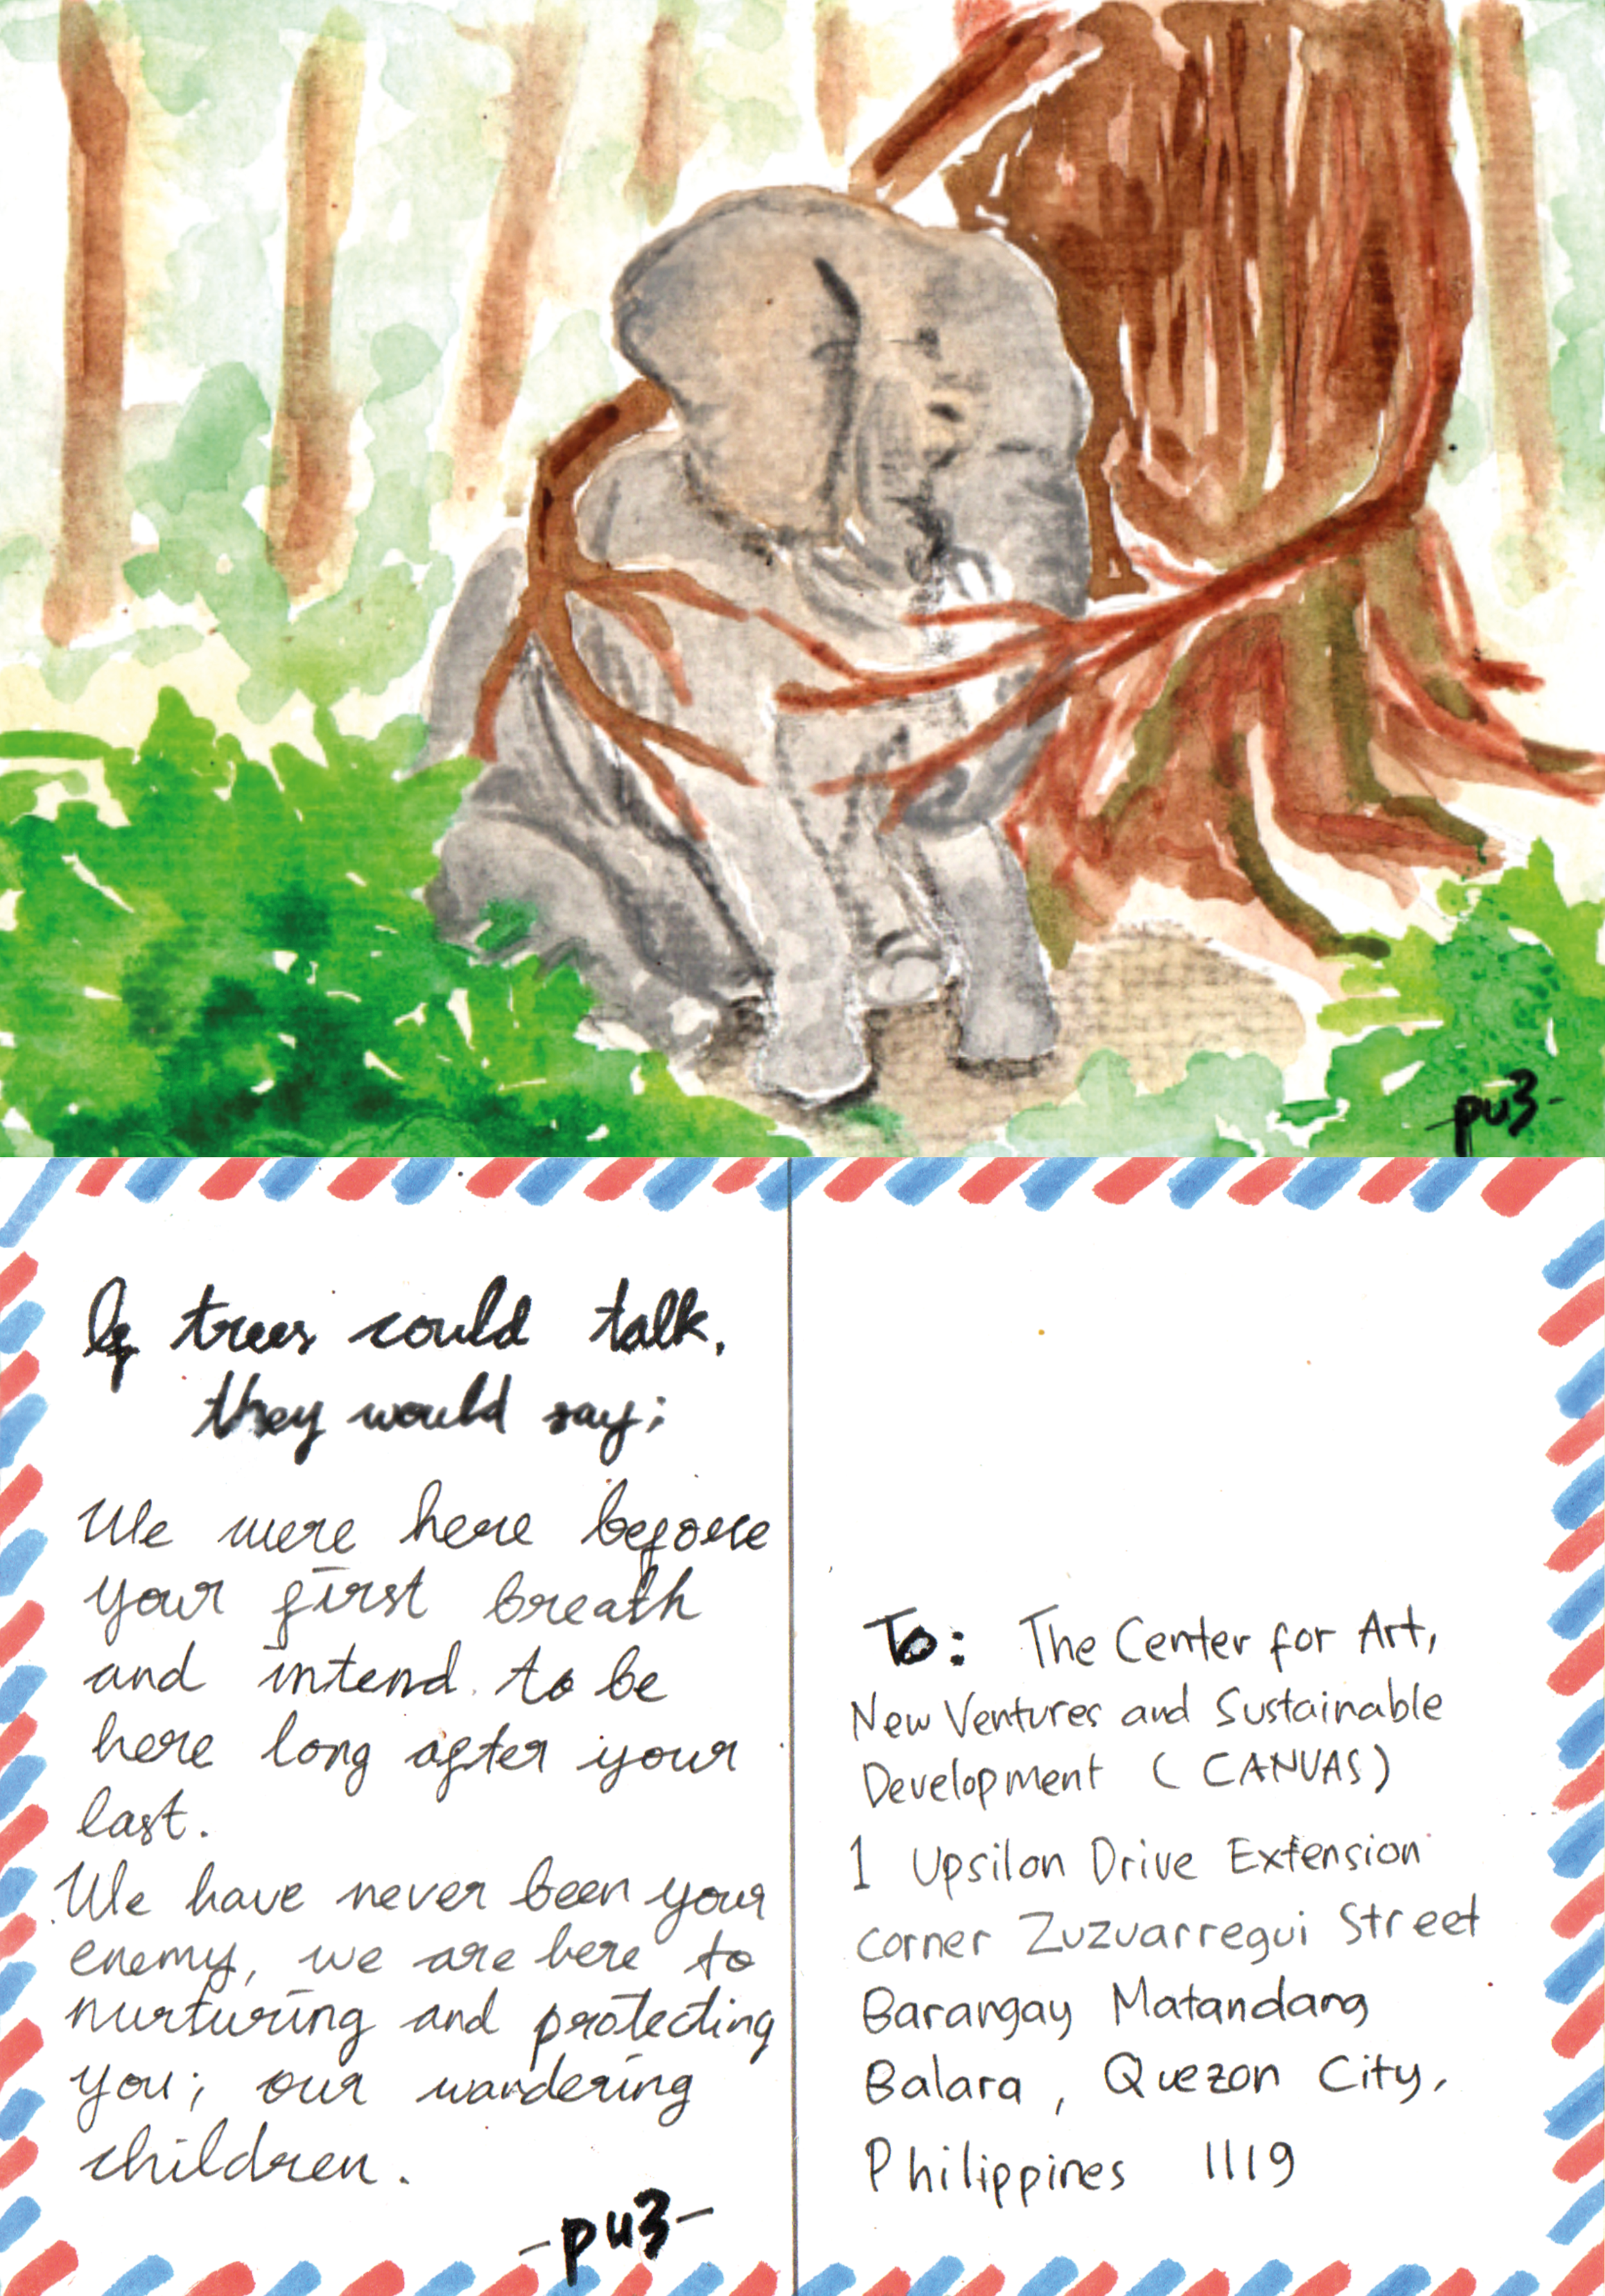 pu3-
If trees could talk,
they would say;
We were here before
your first breath
and intend to be
here long after your
last.
We have never been your
enemy, we are here to
nurturing and protecting
you; our wandering
children.
-pu3-
To: The Center for Art,
New Ventures and Sustainable
Development (CANVAS)
1 Upsilon Drive Extension
corner Zuzuarregui Street
Barangay Matandang
Balara, Quezon City,
Philippines 1119